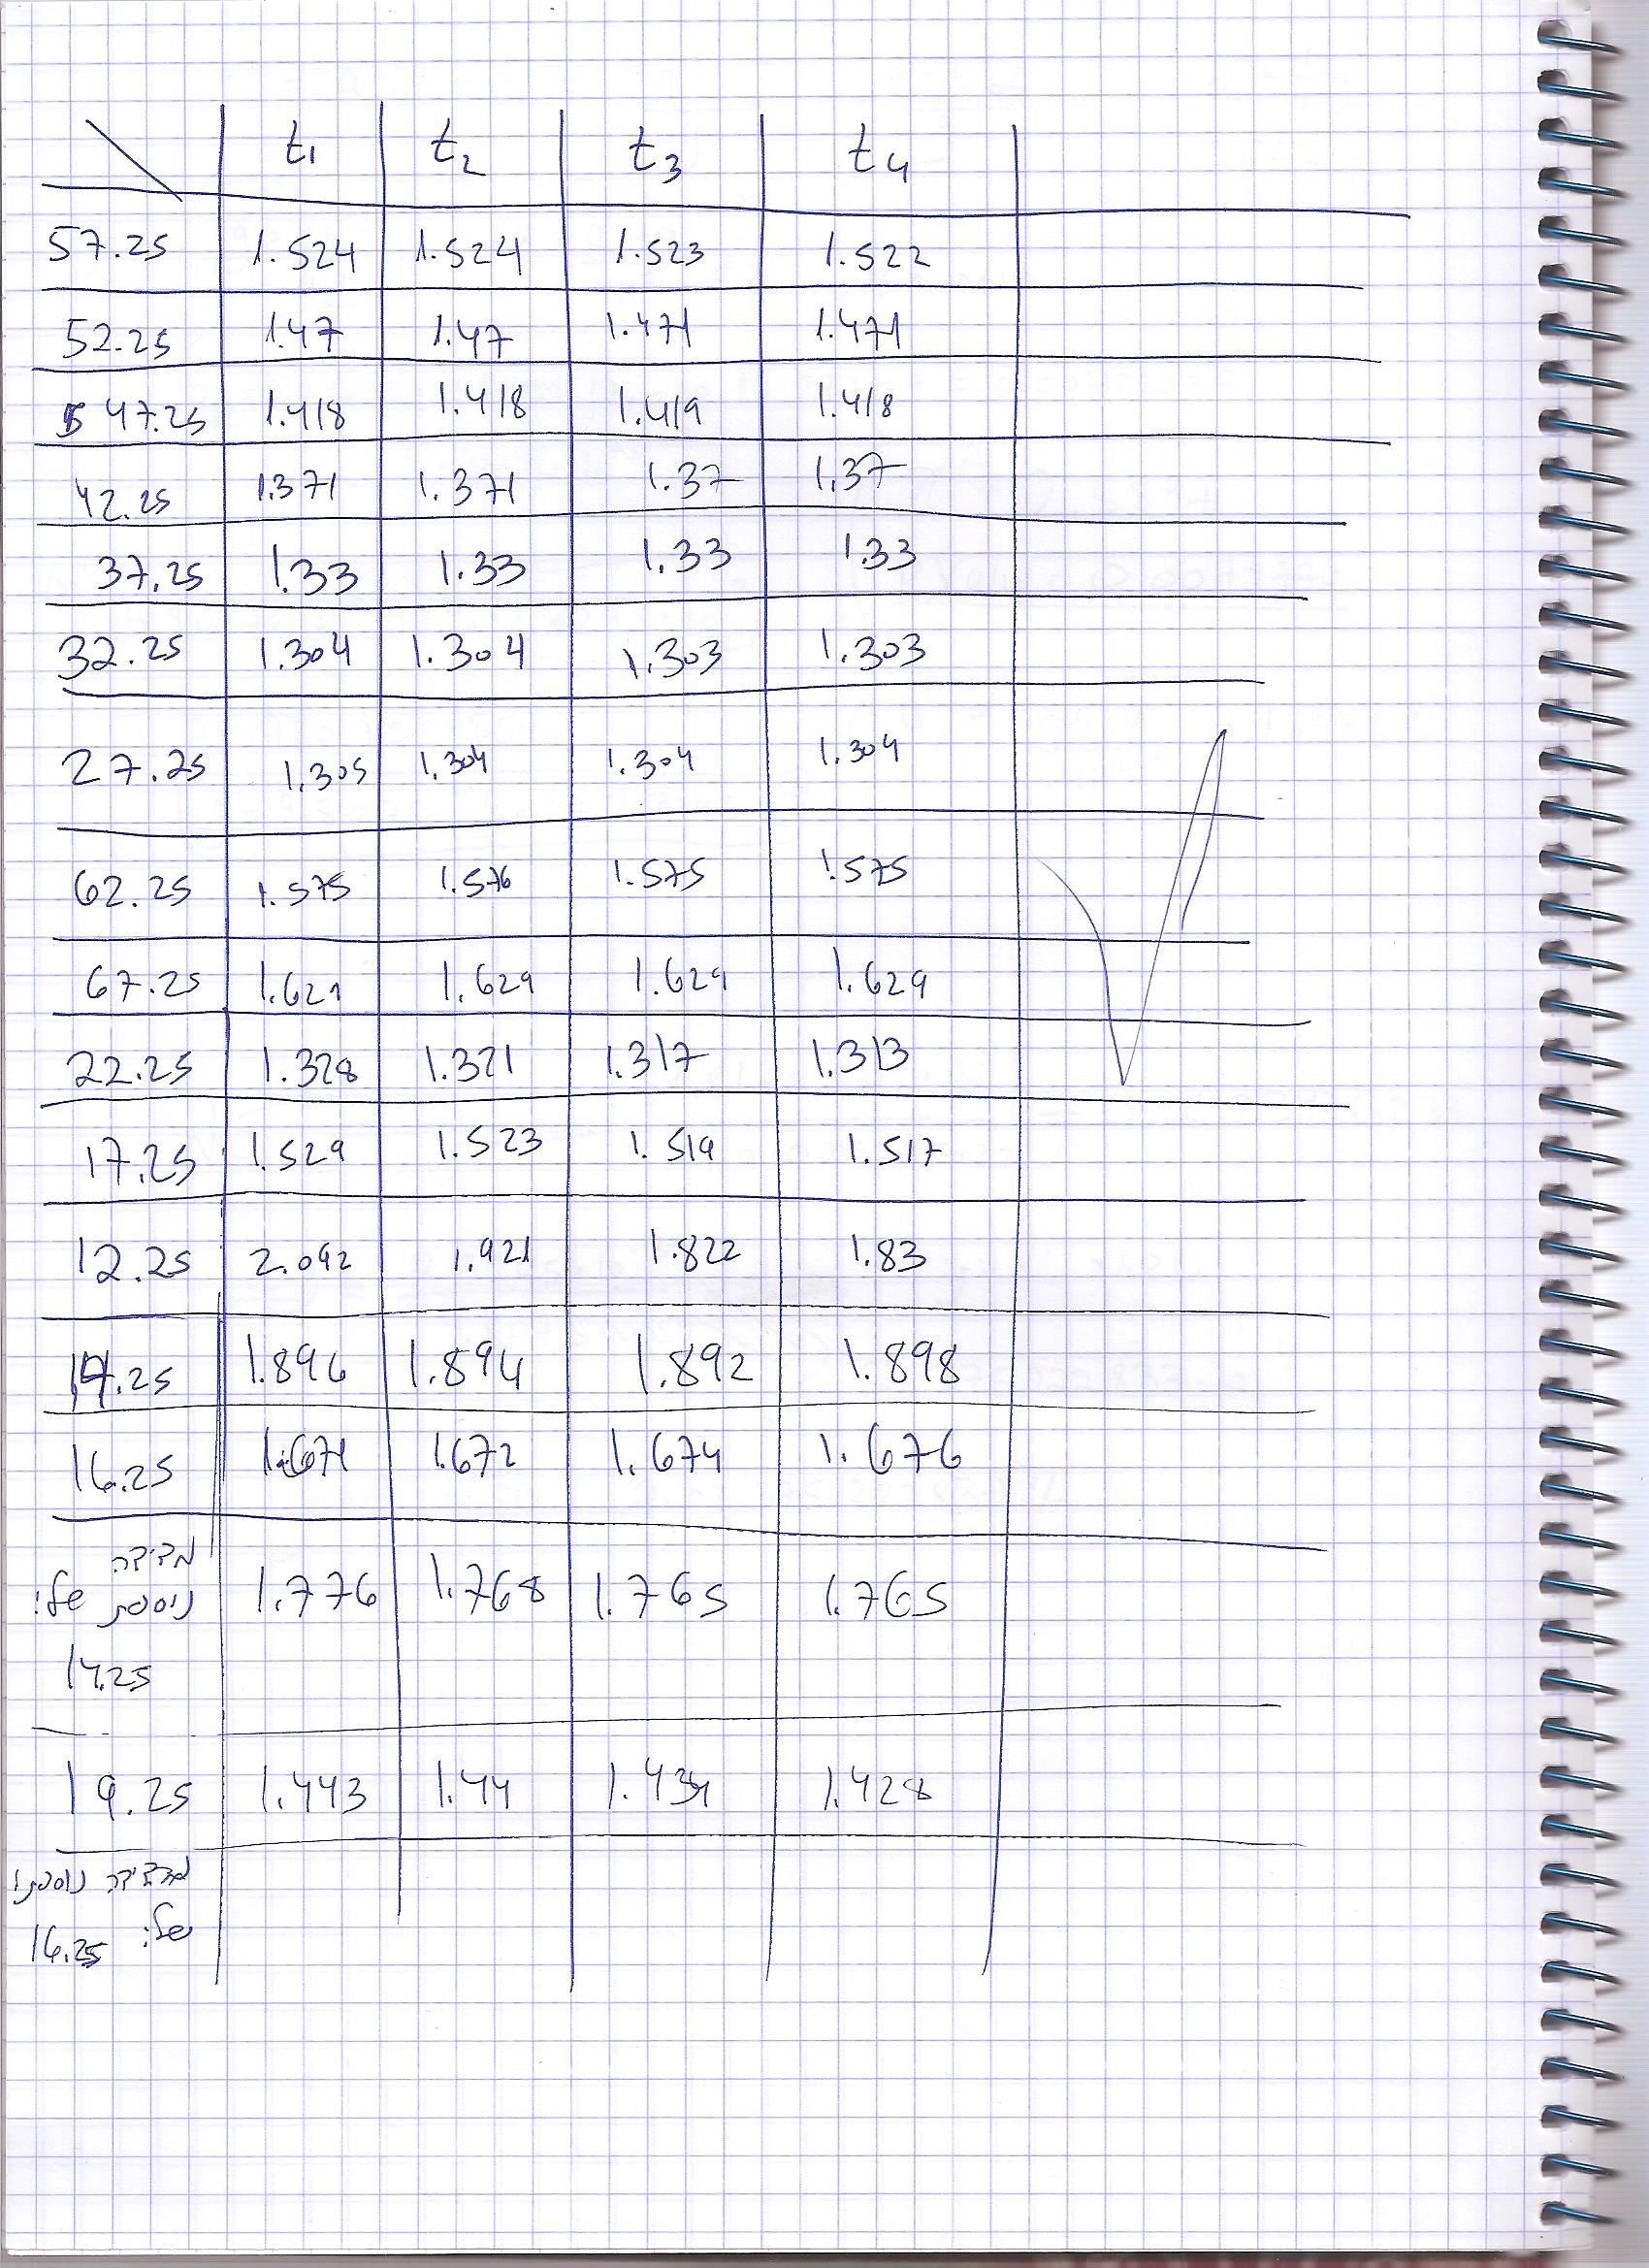 t1 t2 t3 t4
57.25 1.524 1.524 1.523 1.522
52.25 1.47 1.47 1.471 1.471
47.25 1.418 1.418 1.419 1.418
42.25 1.371 1.371 1.37 1.37
37.25 1.33 1.33 1.33 1.33
32.25 1.304 1.304 1.303 1.303
27.25 1.305 1.304 1.304 1.304
62.25 1.575 1.576 1.575 1.575
67.25 1.629 1.629 1.629 1.629
22.25 1.328 1.321 1.317 1.313
17.25 1.529 1.523 1.519 1.517
12.25 2.092 1.921 1.822 1.83
14.25 1.896 1.894 1.892 1.898
16.25 1.671 1.672 1.674 1.676
מדידה
נוספת של: 1.776 1.768 1.765 1.765
14.25
19.25 1.443 1.44 1.434 1.428
מדידה נוספת
של: 16.25